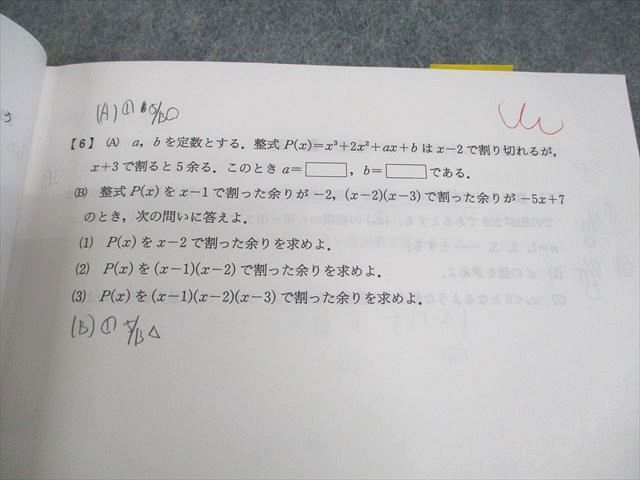 (A) ① 5/30
【6】 (A) a, b を定数とする．整式 P(x)=x³+2x²+ax+b は x-2 で割り切れるが，
x+3 で割ると 5 余る．このとき a=□，b=□である．
(B) 整式 P(x) を x-1 で割った余りが -2, (x-2)(x-3) で割った余りが -5x+7
のとき，次の問いに答えよ．
(1) P(x) を x-2 で割った余りを求めよ．
(2) P(x) を (x-1)(x-2) で割った余りを求めよ．
(3) P(x) を (x-1)(x-2)(x-3) で割った余りを求めよ．
(B) ① 5/3 △